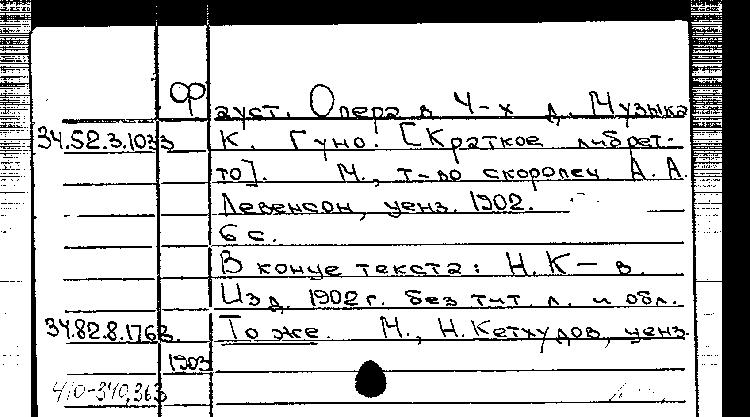 Фауст. Опера в 4-х д. Музыка
34.52.3.1033 К. Гуно. [Краткое либрет-
то]. М., т-во скоропеч. А. А.
Левенсон, ценз. 1902.
6 с.
В конце текста: Н. К-в.
Изд. 1902 г. без тит. л. и обл.
34.82.8.1763. То же. М., Н. Кетхудов, ценз.
1903
410-340,363